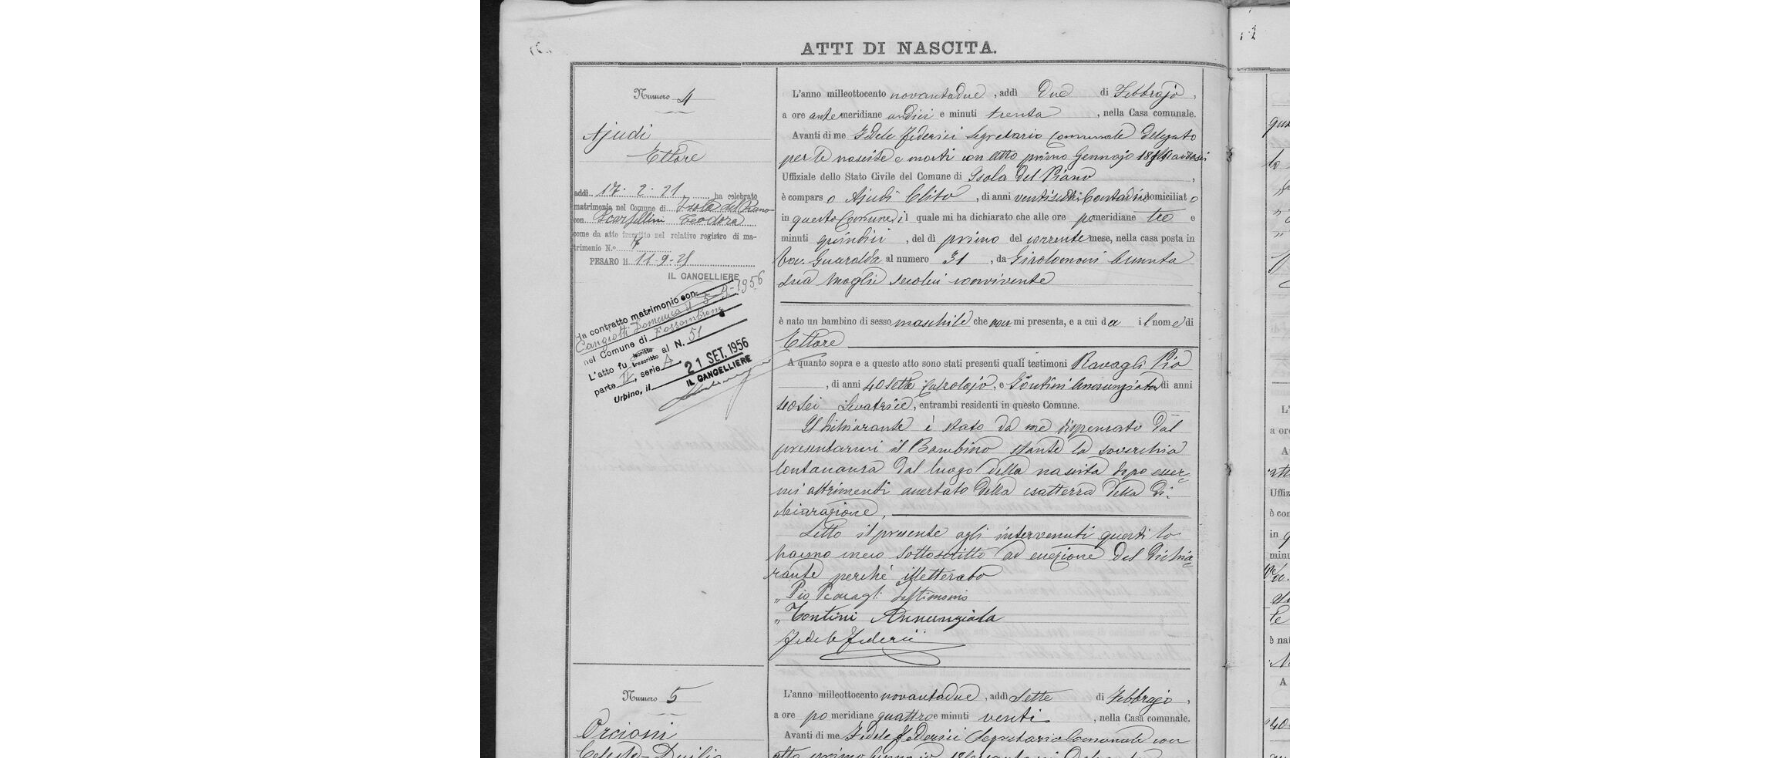 ATTI DI NASCITA.
Numero 4
Ajudi
Ettore
addì 17-2-21 ha celebrato
matrimonio nel Comune di Isola del Piano
con Scarpellini Teodora
come da atto inscritto nel relativo registro di ma-
trimonio N.°
PESARO lì 11-9-21
IL CANCELLIERE
Ha contratto matrimonio con
Cangiotti Domenica il 5-9-1956
nel Comune di Fossombrone
L'atto fu al N. 51
parte II, serie A
21 SET. 1956
Urbino, il
IL CANCELLIERE
L'anno milleottocento novantadue, addì due di Febbrajo,
a ore antemeridiane undici e minuti trenta, nella Casa comunale.
Avanti di me Fedele Federici Segretario Comunale delegato
per le nascite e morti con atto primo Gennajo
Uffiziale dello Stato Civile del Comune di Isola del Piano,
è comparso Ajudi Clito, di anni ventisei Contadino domiciliato
in questo Comune, il quale mi ha dichiarato che alle ore pomeridiane tre e
minuti quindici, del dì primo del corrente mese, nella casa posta in
Voc. Guaralda al numero 31, da Girolomoni Assunta
sua moglie seco lui convivente
è nato un bambino di sesso maschile che non mi presenta, e a cui dà il nome di
Ettore
A quanto sopra e a questo atto sono stati presenti quali testimoni Ravagli Pio
, di anni 40sette Calzolajo, e Tontini Annunziata di anni
40sei Levatrice, entrambi residenti in questo Comune.
Il dichiarante è stato da me dispensato dal
presentarmi il Bambino stante la soverchia
lontananza dal luogo della nascita dopo esser-
mi altrimenti accertato della esattezza della di-
chiarazione.
Letto il presente agli intervenuti questi lo
hanno meco sottoscritto ad eccezione del Dichia-
rante perché illetterato
" Pio Ravagli testimonio
" Tontini Annunziata
Fedele Federici
Numero 5
Orcioni
Celeste Duilio
L'anno milleottocento novantadue, addì sette di Febbrajo,
a ore pomeridiane quattro e minuti venti, nella Casa comunale.
Avanti di me Fedele Federici Segretario Comunale con